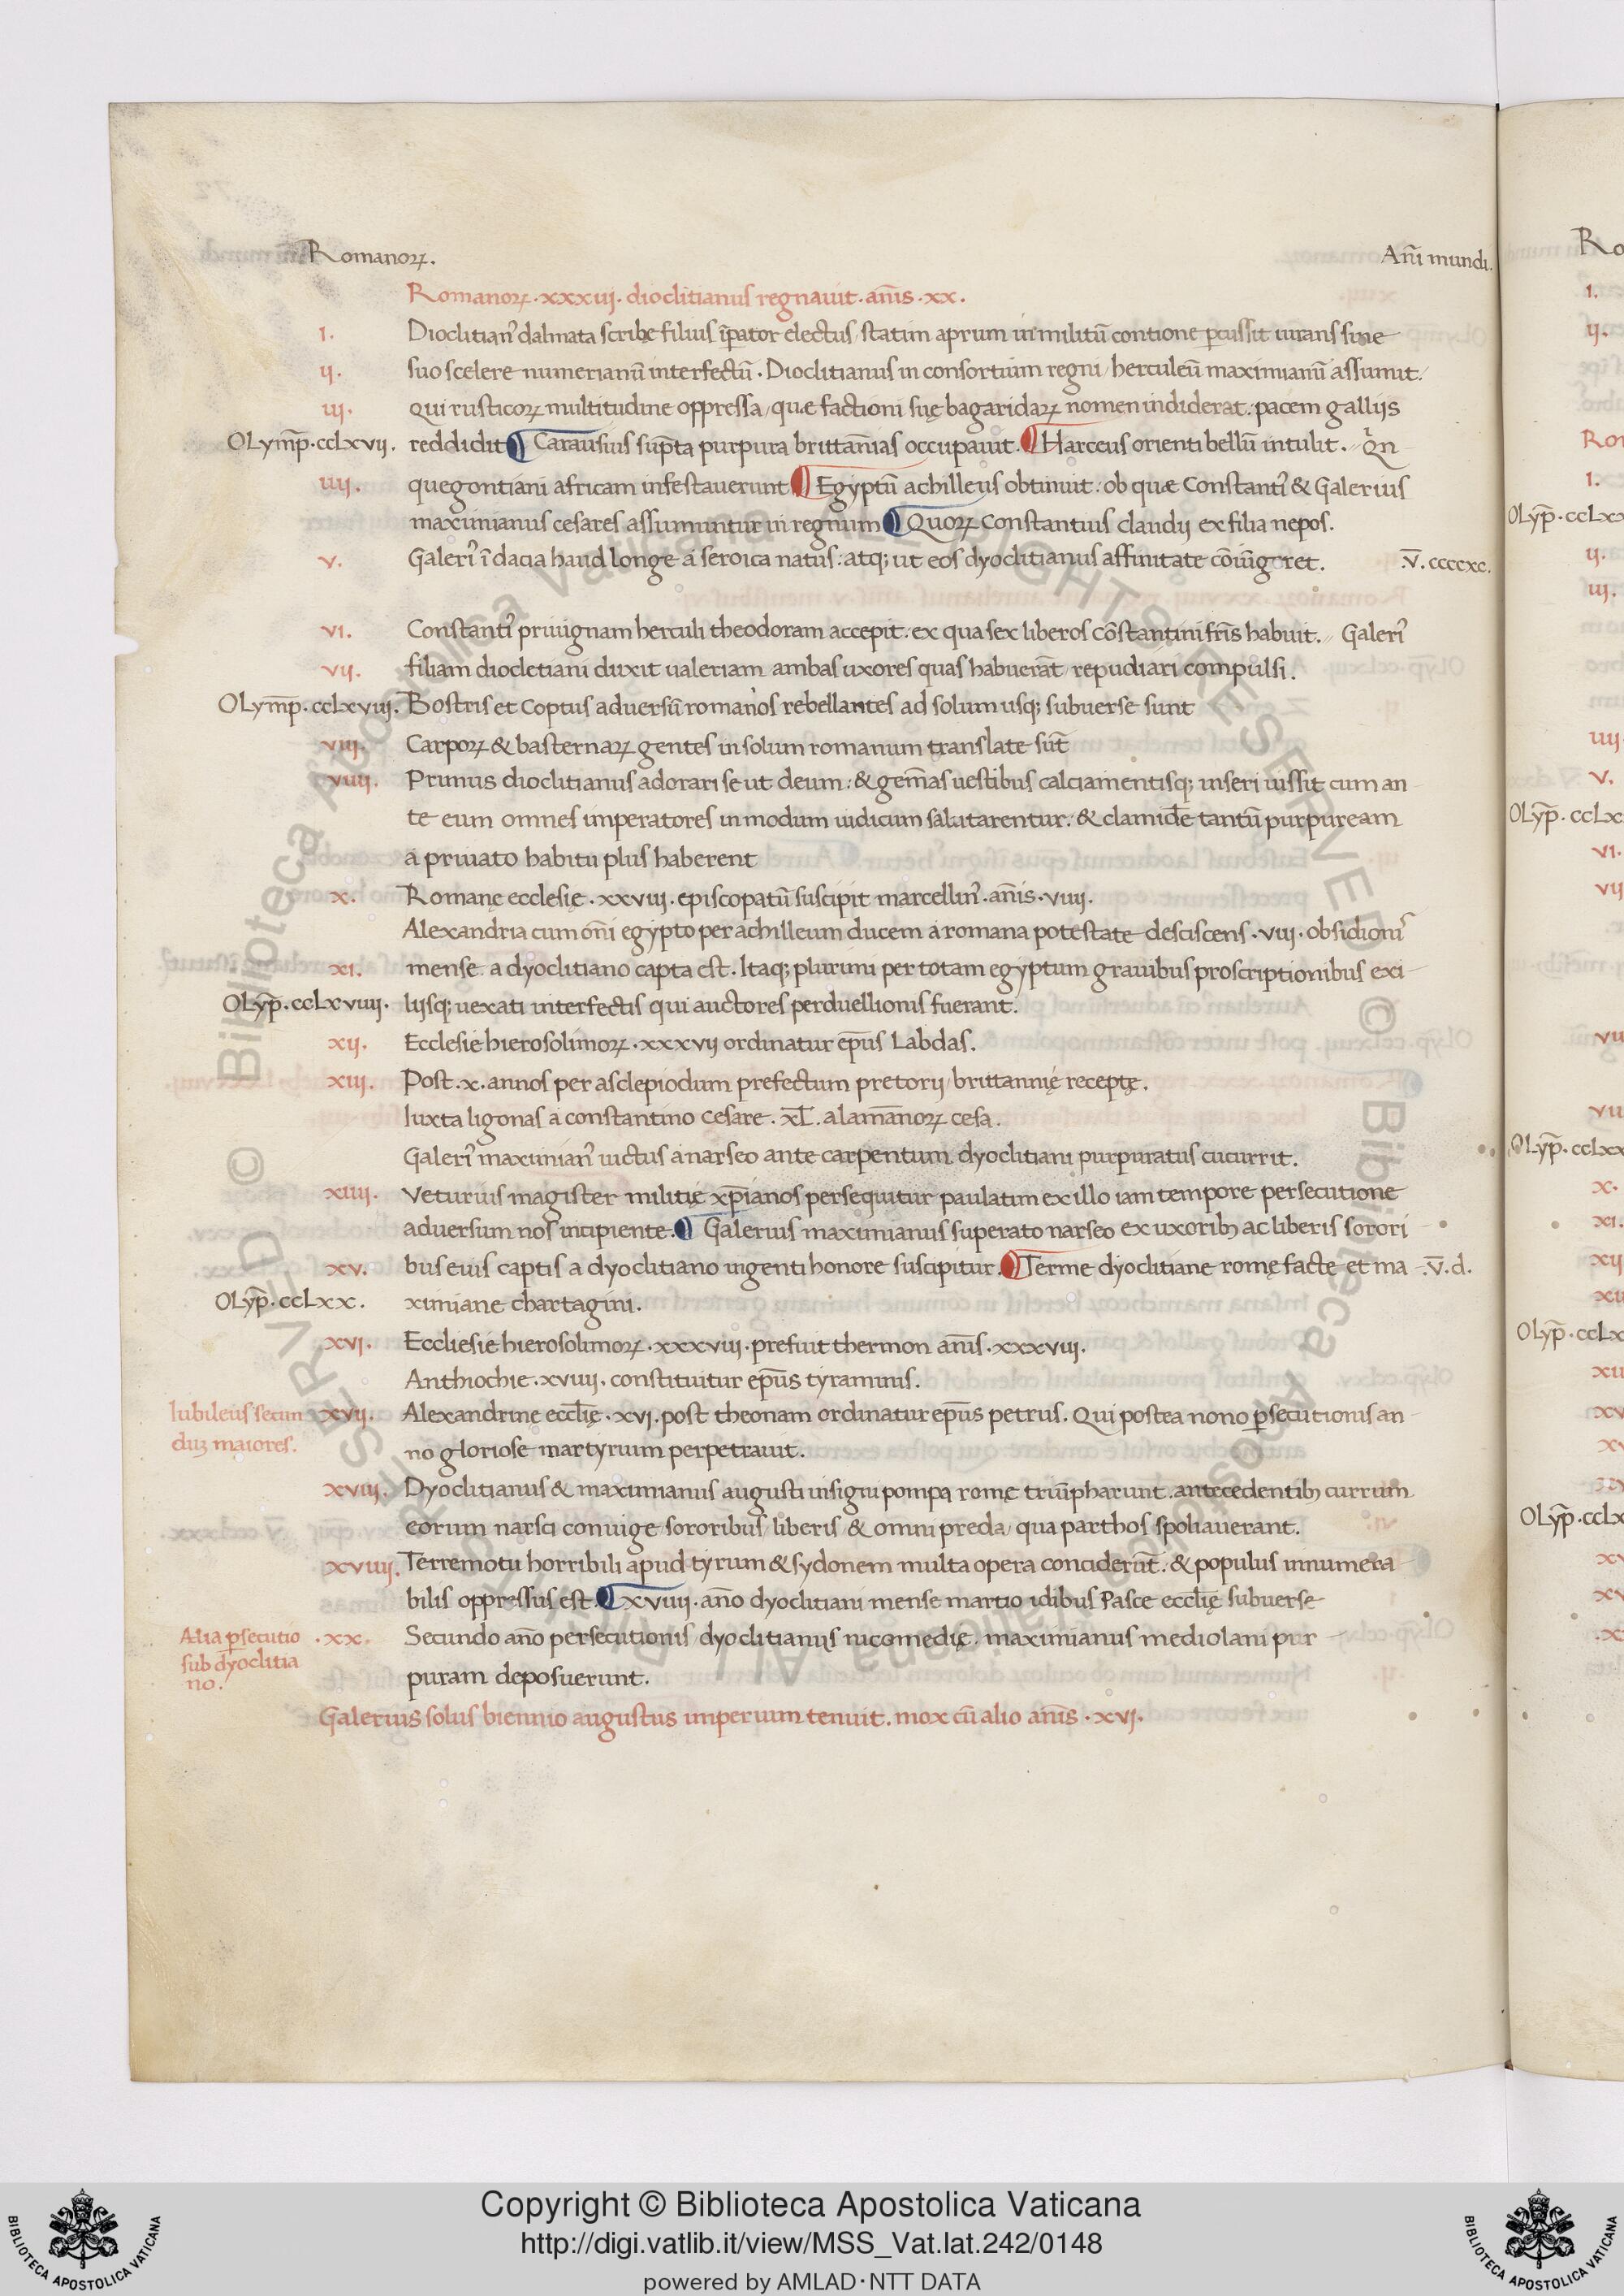 Romanoꝝ.
Añi mundi.
Romanoꝝ·xxxiij· dioclitianus regnauit·añis·xx.
I. Dioclitian᾽ dalmata scribę filius īpator electus/ statim aprum in militū contione pcussit iurans sine
ij. suo scelere numerianū interfectū· Dioclitianus in consortium regni/ herculeū maximianū assumit.
iij. qui rusticoꝝ multitudine oppressa/ quæ factioni suę bagaridaꝝ nomen indiderat: pacem gallijs
OLymp̄·ccLxvij. reddidit ¶ Carausius sup̄ta purpura brittañias occupauit. ¶ Harceus orienti bellū intulit. Qn
iiij. quegontiani africam infestauerunt ¶ Egyptū achilleus obtinuit: ob quæ Constanti᾽ & Galerius
maximianus cesares assumuntur in regnum ¶ Quoꝝ Constantius claudij ex filia nepos.
v. Galeri᾽ ī dacia haud longe a seroica natus: atq; ut eos dyoclitianus affinitate cōiūgeret. .v̄. ccccxc.
vi. Constanti᾽ priuignam herculi theodoram accepit. ex qua sex liberos cōstantini fr̄is habuit. Galeri᾽
vij. filiam diocletiani duxit ualeriam ambas uxores quas habuerāt/ repudiari compulsi.
OLymp̄·ccLxviij. Bostris et Coptus aduersū romanos rebellantes ad solum usq; subuerse sunt
viij. Carpoꝝ & basternaꝝ gentes in solum romanum translate sūt
viiij. Primus dioclitianus adorari se ut deum: & gem̄as uestibus calciamentisq; inseri iussit cum an
te eum omnes imperatores in modum iudicum salutarentur: & clamidē tantū purpuream
a priuato habitu plus haberent
x. Romanę ecclesię·xxviij·episcopatū suscipit marcellin᾽·añis·viiij.
Alexandria cum om̄i egypto per achilleum ducem a romana potestate desciscens·viij·obsidioni᾽
xi. mense a dyoclitiano capta est. Itaq; plurimi per totam egyptum grauibus proscriptionibus exi
OLyp̄·ccLxviiij· lijsq; uexati interfectis qui auctores perduellionis fuerant.
xij. Ecclesie hierosolimoꝝ·xxxvij ordinatur ep̄us Labdas.
xiij. Post·x·annos per asclepiodum prefectum pretorij/ brittannię receptę.
Iuxta ligonas a constantino cesare·xL̄·alamānoꝝ cesa.
Galeri᾽ maximian᾽ uictus a narseo ante carpentum dyoclitiani purpuratus cucurrit.
xiiij. Veturius magister militię xp̄ianos persequitur paulatim ex illo iam tempore persecutione
aduersum nos incipiente. ¶ Galerius maximianus superato narseo ex uxorib; ac liberis sorori
xv. bus eius captis a dyoclitiano ingenti honore suscipitur. ¶ Terme dyoclitiane romę facte et ma .v̄.d.
OLyp̄·ccLxx. ximiane chartagini.
xvi. Eccliesie hierosolimoꝝ·xxxviij·prefuit thermon añis·xxxviij.
Anthiochie·xviiij·constituitur ep̄us tyramnis.
Iubileus secun
xvij. Alexandrinę eccl̄ię·xvi·post theonam ordinatur ep̄us petrus. Qui postea nono psecutionis an
duȝ maiores.
no gloriose martyrium perpetrauit.
xviij. Dyoclitianus & maximianus augusti insigni pompa romę triūpharunt. antecedentib; currum
eorum narsei coniuge/ sororibus/ liberis/ & omni preda/ qua parthos spoliauerant.
xviiij. Terremotu horribili apud tyrum & sydonem multa opera conciderūt. & populus innumera
bilis oppressus est. ¶ xviiij·año dyoclitiani mense martio idibus Pasce eccl̄ię subuerse
Alia psecutio
sub dyoclitia
no.
·xx. Secundo año persecutionis/ dyoclitianus nicomedię. maximianus mediolani pur
puram deposuerunt.
Galerius solus biennio augustus imperium tenuit. mox cū alio añis·xvi.
Copyright © Biblioteca Apostolica Vaticana
http://digi.vatlib.it/view/MSS_Vat.lat.242/0148
powered by AMLAD·NTT DATA
BIBLIOTECA APOSTOLICA VATICANA
BIBLIOTECA APOSTOLICA VATICANA